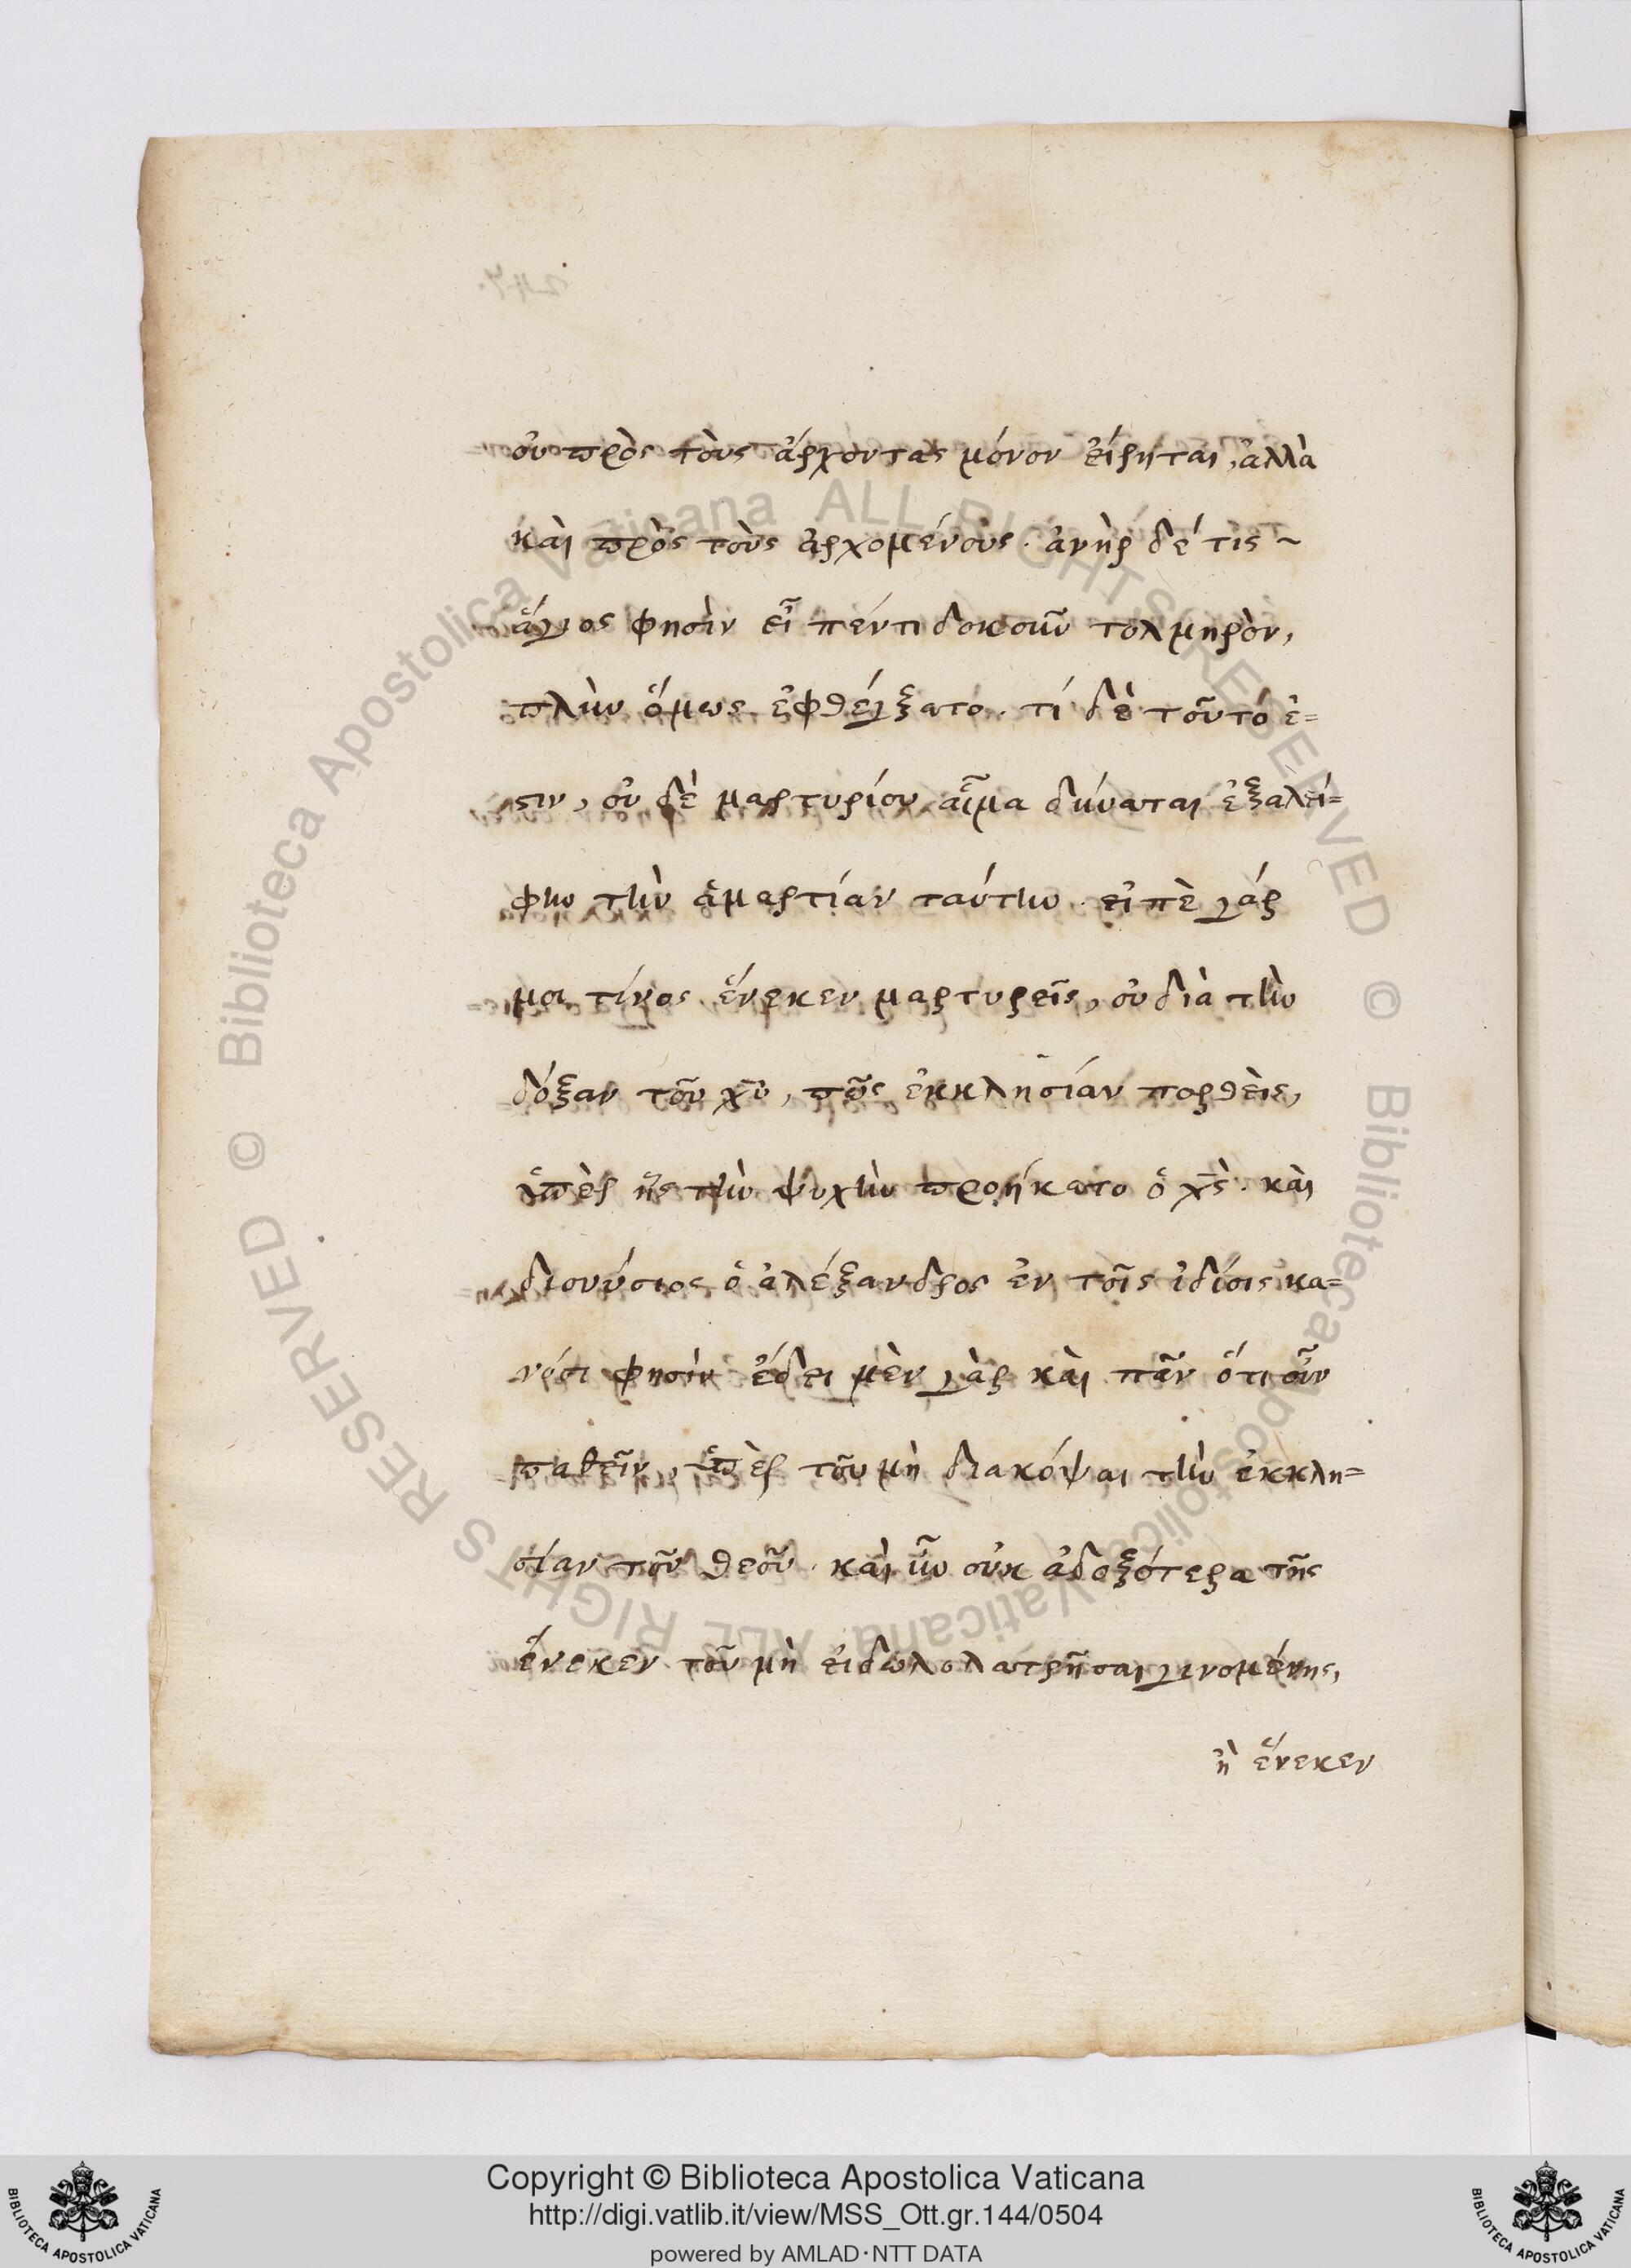 οὐ πρὸς τοὺς ἄρχοντας μόνον εἴρηται, ἀλλὰ
καὶ πρὸς τοὺς ἀρχομένους. ἀνὴρ δέ τις ~
ἅγιος φησὶν εἶπέν τι δοκοῦν τολμηρὸν,
πλὴν ὅμως ἐφθέγξατο. τί δὲ τοῦτό ἐ=
στιν, οὐδὲ μαρτυρίου αἷμα δύναται ἐξαλεί=
φην τὴν ἁμαρτίαν ταύτην. εἰπὲ γάρ
μοι τίνος ἕνεκεν μαρτυρεῖς, οὐ διὰ τὴν
δόξαν τοῦ χυ, πῶς ἐκκλησίαν πορθεὶς,
ὑπὲρ ἧς τὴν ψυχὴν προήκατο ὁ χς. καὶ
διονύσιος ὁ ἀλέξανδρος ἐν τοῖς ἰδίοις κα=
νόσι φησὶν ἔδει μὲν γὰρ καὶ πᾶν ὁτιοῦν
παθεῖν, ὑπὲρ τοῦ μὴ διακόψαι τὴν ἐκκλη=
σίαν τοῦ θεοῦ. καὶ ἦν οὐκ ἀδοξότερα τῆς
ἕνεκεν τοῦ μὴ εἰδωλολατρῆσαι γινομένης,
ἢ ἕνεκεν
© Biblioteca Apostolica Vaticana ALL RIGHTS RESERVED © Biblioteca Apostolica Vaticana ALL RIGHTS RESERVED
Copyright © Biblioteca Apostolica Vaticana
http://digi.vatlib.it/view/MSS_Ott.gr.144/0504
powered by AMLAD·NTT DATA
BIBLIOTECA APOSTOLICA VATICANA
BIBLIOTECA APOSTOLICA VATICANA